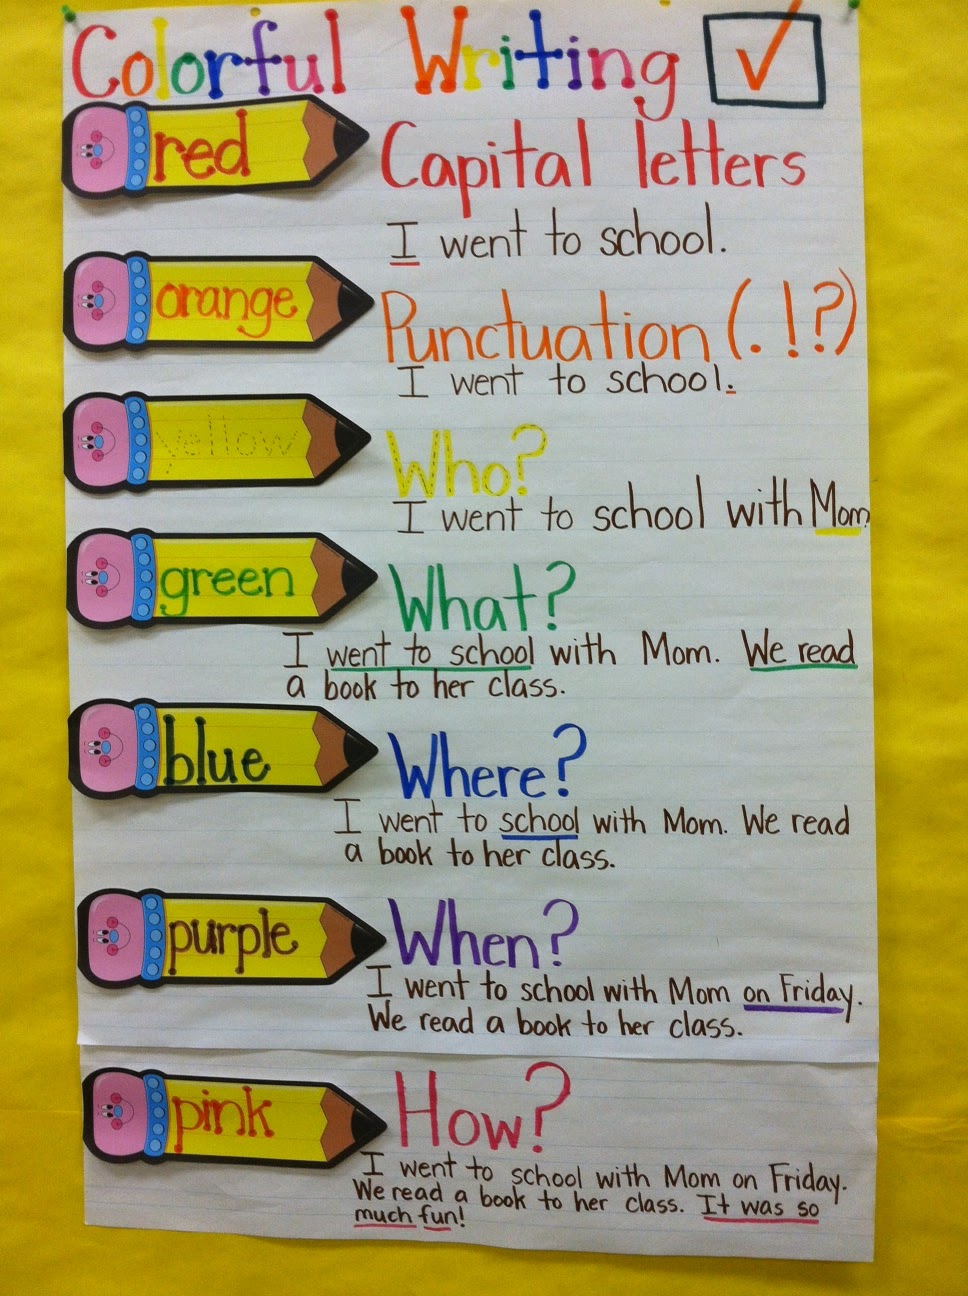 Colorful Writing
red
Capital letters
I went to school.
orange
Punctuation (.!?)
I went to school.
yellow
Who?
I went to school with Mom.
green
What?
I went to school with Mom. We read
a book to her class.
blue
Where?
I went to school with Mom. We read
a book to her class.
purple
When?
I went to school with Mom on Friday.
We read a book to her class.
pink
How?
I went to school with Mom on Friday.
We read a book to her class. It was so
much fun!